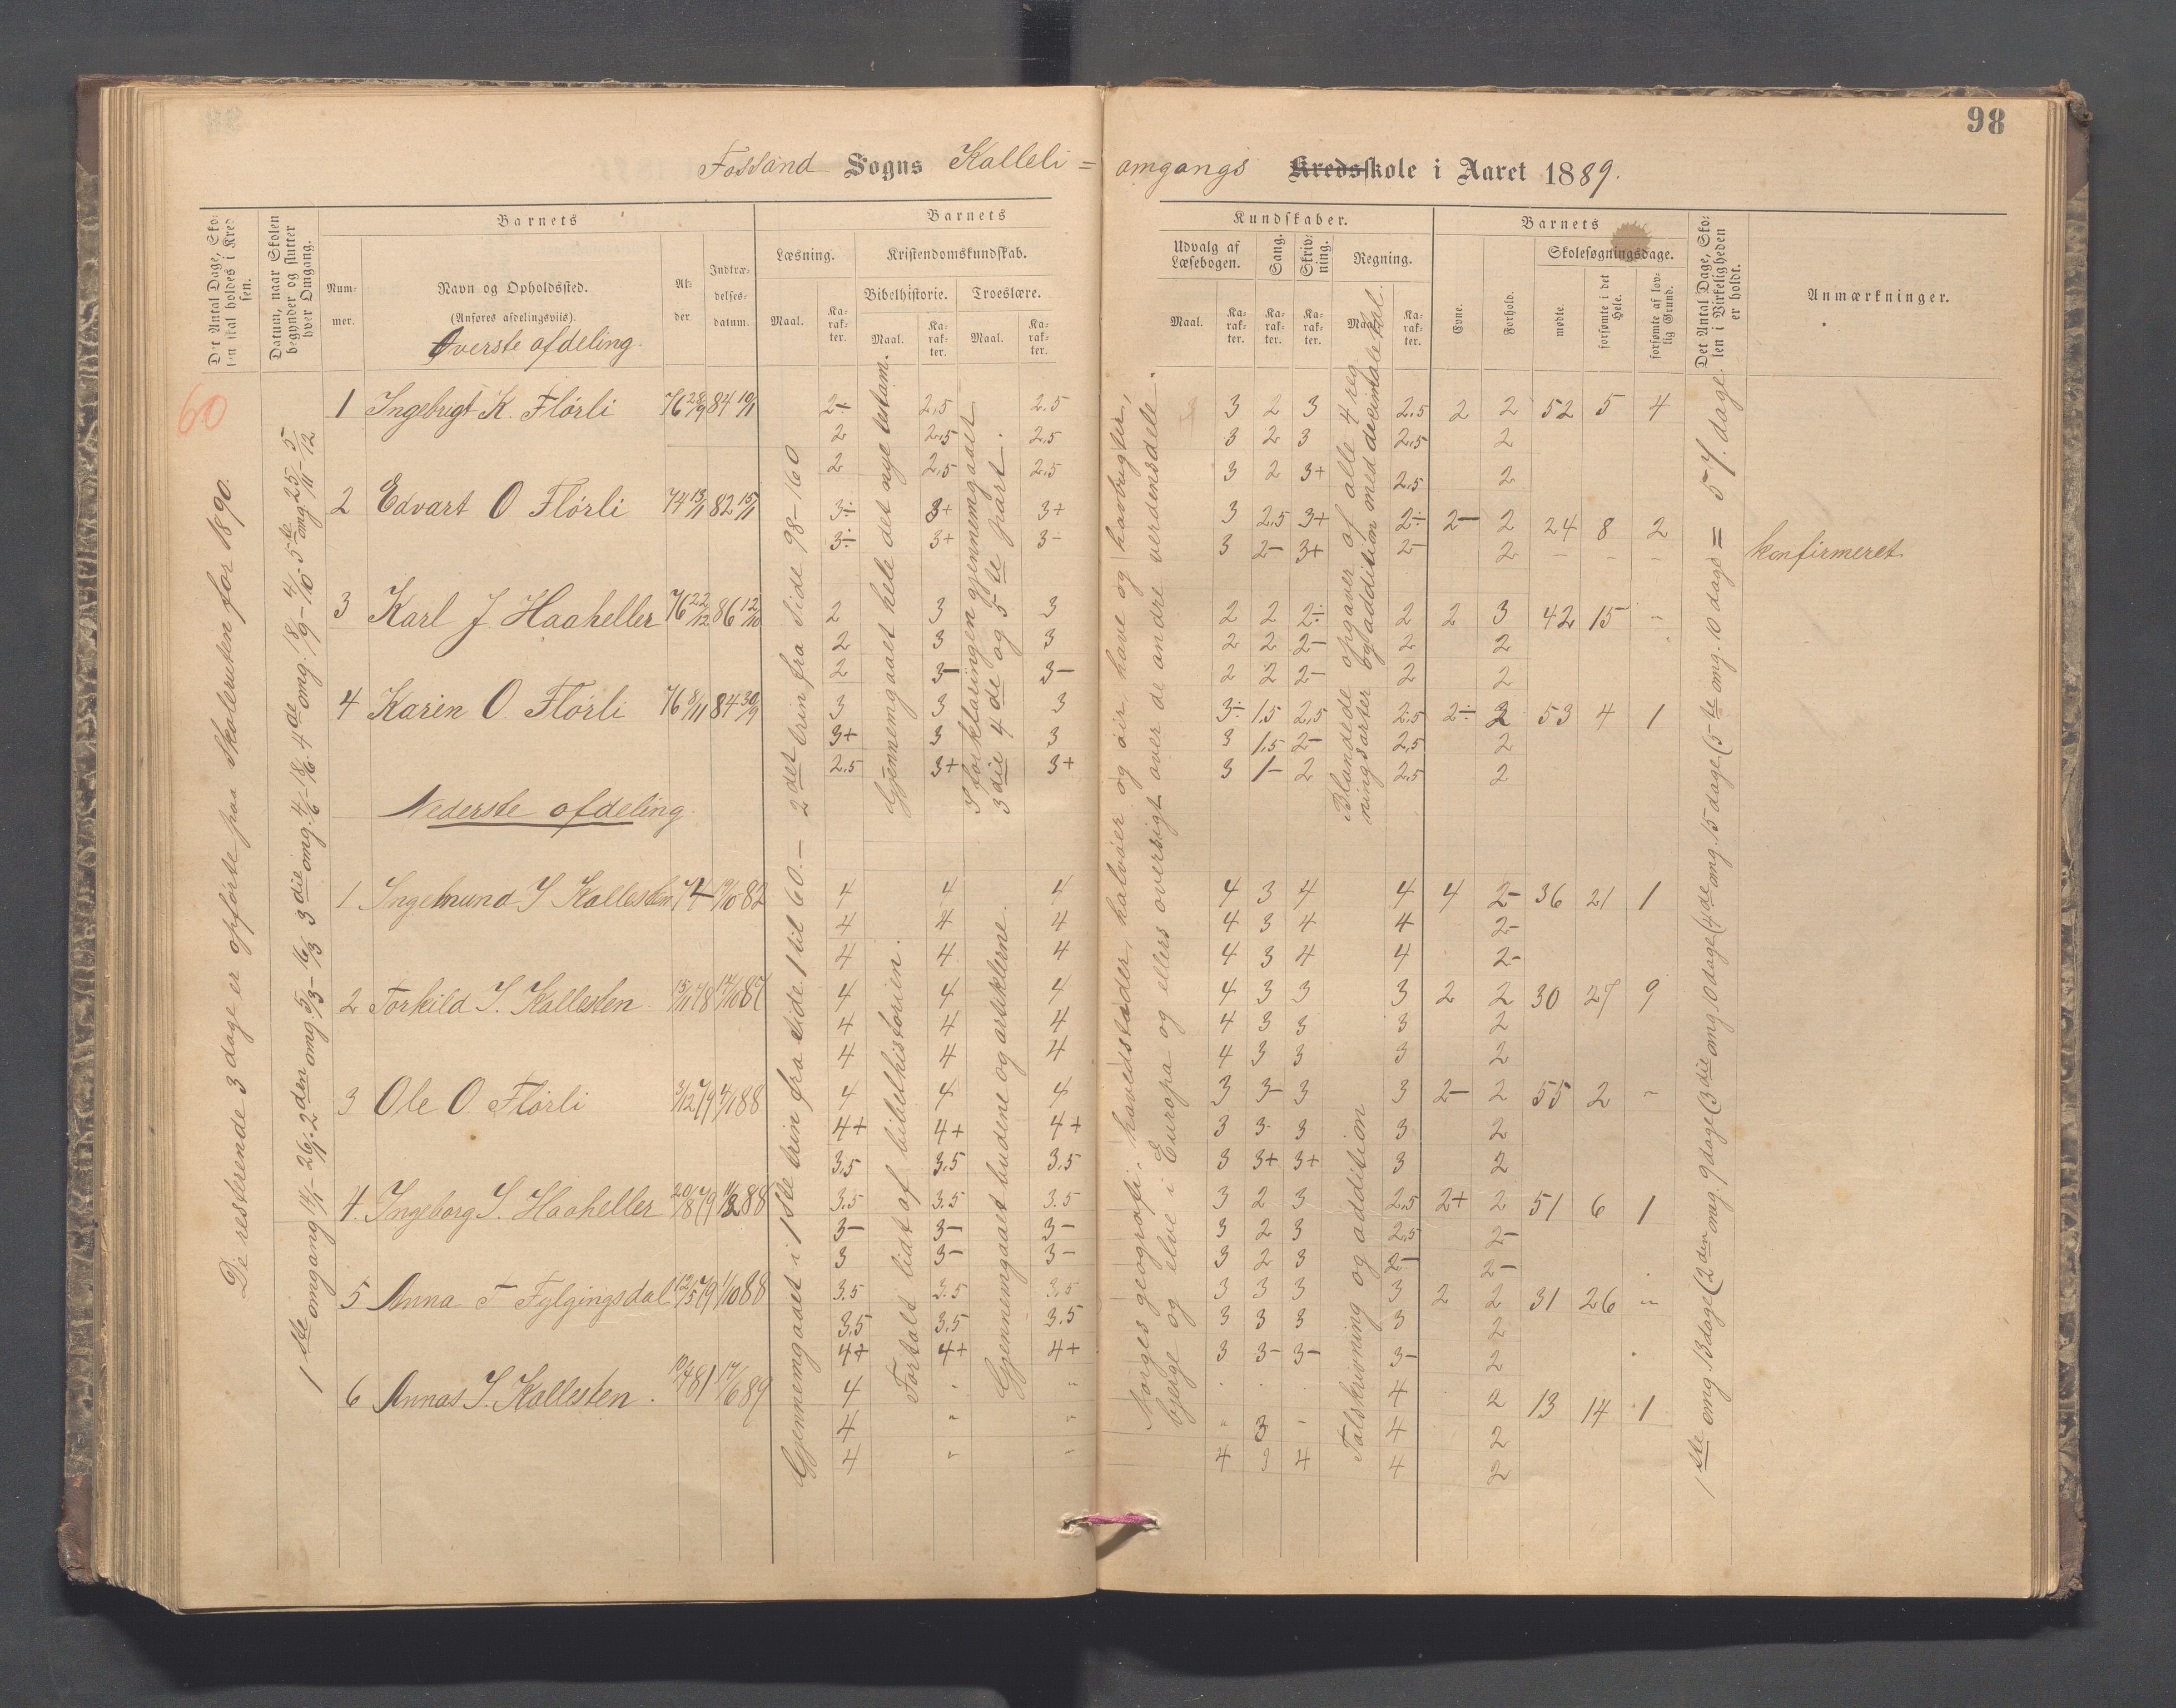 98
Fossand Sogns Kalleli = omgangs Kredsskole i Aaret 1889.
Det Antal Dage, Skolen skal holdes i Kredsen.
Datum, naar Skolen begynder og slutter hver Omgang.
Barnets
Nummer.
Navn og Opholdssted.
(Anføres afdelingsviis).
Alder
Indtrædelsesdatum.
Barnets
Læsning.
Maal.
Karakter.
Kristendomskundskab.
Bibelhistorie.
Maal.
Karakter.
Troeslære.
Maal.
Karakter.
Kundskaber.
Udvalg af Læsebogen.
Maal.
Karakter.
Sang.
Karakter.
Skrivning.
Karakter.
Regning.
Maal.
Karakter.
Barnets
Evne.
Forhold.
Skolesøgningsdage.
mødte.
forsømte i det Hele.
forsømte af lovlig Grund.
Det Antal Dage, Skolen i Virkeligheden er holdt.
Anmærkninger.
Øverste afdeling.
60
De resterende 3 dage er opførte paa Skoleruten for 1890.
1ste omgang 14/1 - 26/1. 2den omg. 5/3 - 16/3 3die omg. 4/6 - 18/6. 4de omg. 18/9 - 4/10. 5te omg. 25/11 - 5/12
1 Ingebrigt K. Flórli 76 28/9 84 10/11 2- 2,5 2.5 3 2 3 2,5 2 2 52 5 4
2 2,5 2.5 3 2 3 2,5 2
2 2,5 2.5 3 2 3+ 2,5 2
2 Edvart O Flórli 74 13/11 82 15/11 3÷ 3+ 3+ 3 2,5 3+ 2÷ 2- 2 24 8 2
3÷ 3+ 3- 3 2- 3+ 2- 2 - - " konfirmeret
3 Karl J Haaheller 76 22/12 86 12/10 2 3 3 2 2 2÷ 2 2 3 42 15 "
2 3 3 2 2 2- 2 2
2 3- 3- 2 2 2- 2 2
4 Karen O. Flórli 76 8/11 84 30/9 3 3 3 3÷ 1,5 2,5 2,5 2÷ 2 53 4 1
3+ 3 3 3 1,5 2- 2,5 2
2.5 3+ 3+ 3 1- 2 2,5 2
Nederste afdeling.
1 Ingemund S Kallesten 74 19/10 82 4 4 4 4 3 4 4 4 2- 36 21 1
4 4 4 4 3 4 4 2-
4 4 4 4 3 4 4 2-
2 Torkild S. Kallesten 15/11 78 14/10 87 4 4 4 4 3 3 3 2 2 30 27 9
4 4 4 4 3 3 3 2
4 4 4 4 3 3 3 2
3 Ole O Flórli 3/12 79 4/1 88 4 4 4 3 3- 3 3 2- 2 55 2 "
4+ 4+ 4+ 3 3- 3 3 2
3,5 3.5 3.5 3 3+ 3+ 3 2
4. Ingeborg S. Haaheller 20/8 79 88 3.5 3.5 3.5 3 2 3 2,5 2+ 2 51 6 1
3- 3- 3- 3 2 3 2,5 2-
3 3- 3- 3 2 3 2- 2-
5 Anna T Fylgingsdal 12/5 79 1/10 88 3.5 3.5 3.5 3 3 3 3 2 2 31 26 "
3.5 3.5 3.5 3 3 3 3 2
4+ 4+ 4+ 3 3- 3- 3- 2
6 Annas S. Kallesten. 81 17/6 89 4 " " 4 2 13 14 1
4 " " " 3 - 4 2
4 " " 4 3 4 4 2
Gjennemgaaet i 1ste trin fra side 1 til 60. — 2det trin fra side 98-160
Gjennemgaaet hele det nye testam.
Fortalt lidt af bibelhistorien.
I forklaringen gjennemgaaet
3die 4de og 5te part.
Gjennemgaaet budene og artiklerne.
Norges geografi: hovedstæder, halvøer og øer have og havbugter,
bjerge og elve i Europa og ellers oversigt over de andre verdensdele.
Blandede opgaver af alle 4 reg
ningsarter og addition med decimaletal.
Talskrivning og addition
1ste omg. 13 dage (2den omg. 9 dage (3die omg 10 dage (4de omg. 15 dage (5te omg. 10 dage = 57. dage.